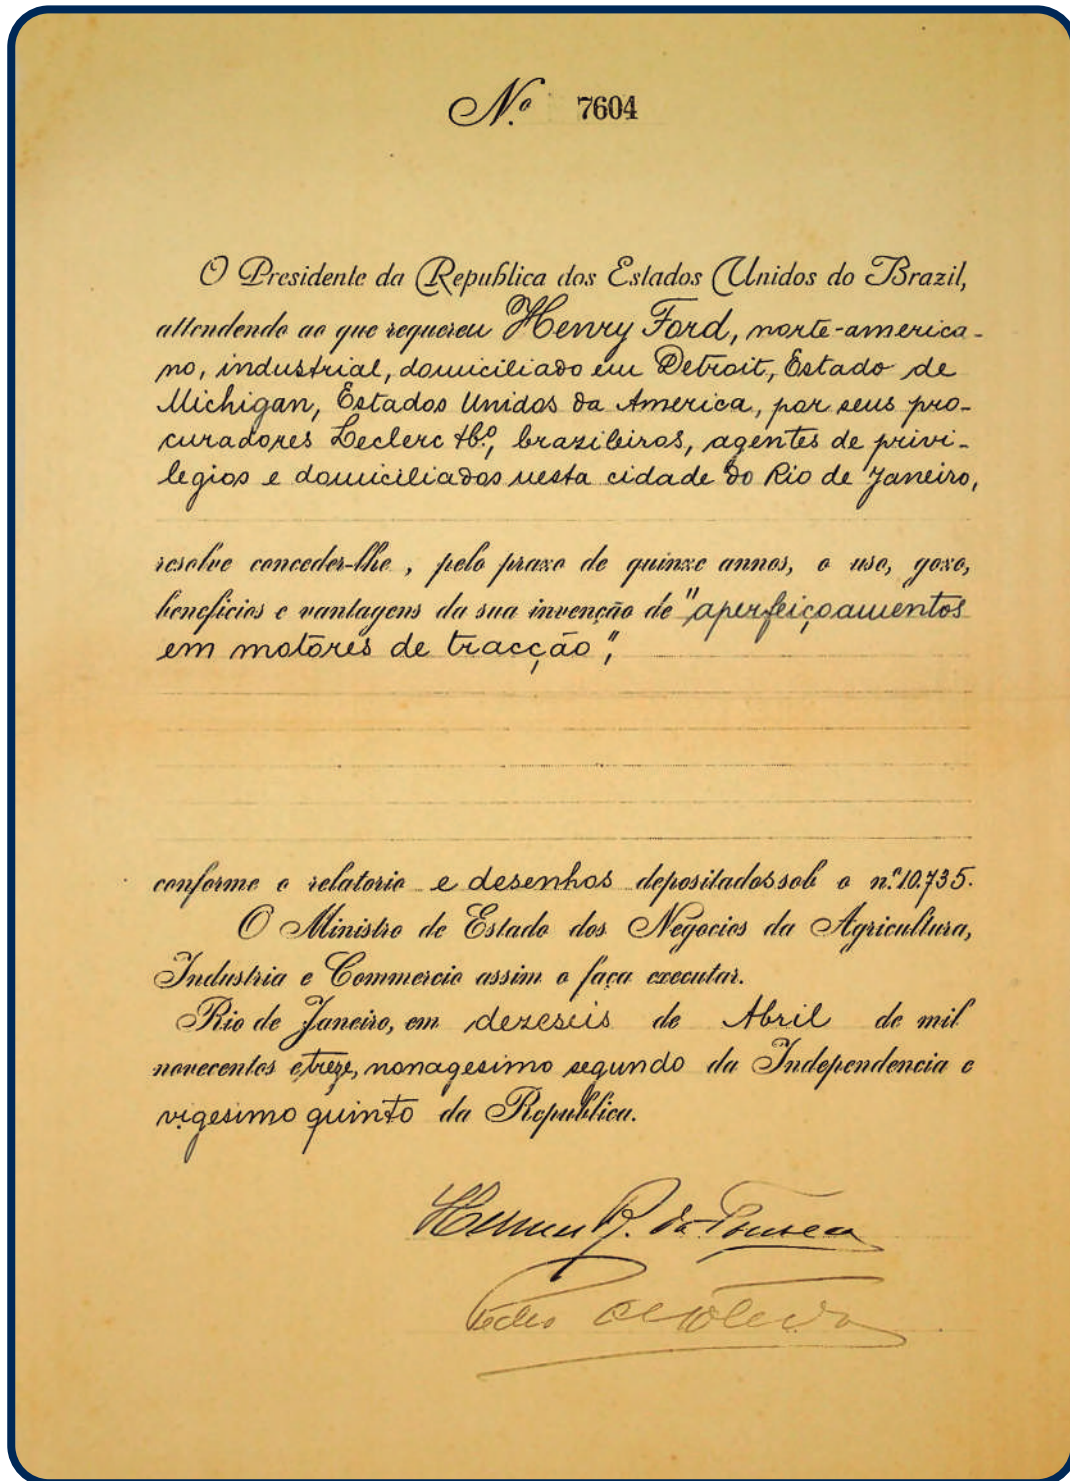 Nº 7604
O Presidente da Republica dos Estados Unidos do Brazil,
attendendo ao que requereu Henry Ford, norte-america-
no, industrial, domiciliado em Detroit, Estado de
Michigan, Estados Unidos da America, por seus pro-
curadores Leclerc & Cº, brazileiros, agentes de privi-
legios e domiciliados nesta cidade do Rio de Janeiro,
resolve conceder-lhe, pelo prazo de quinze annos, o uso, gozo,
beneficios e vantagens da sua invenção de "aperfeiçoamentos
em motores de tracção",
conforme o relatorio e desenhos depositados sob o n.º 10.735.
O Ministro de Estado dos Negocios da Agricultura,
Industria e Commercio assim o faça executar.
Rio de Janeiro, em dezeseis de Abril de mil
novecentos e treze, nonagesimo segundo da Independencia e
vigesimo quinto da Republica.
Hermes R. da Fonseca
Pedro de Toledo